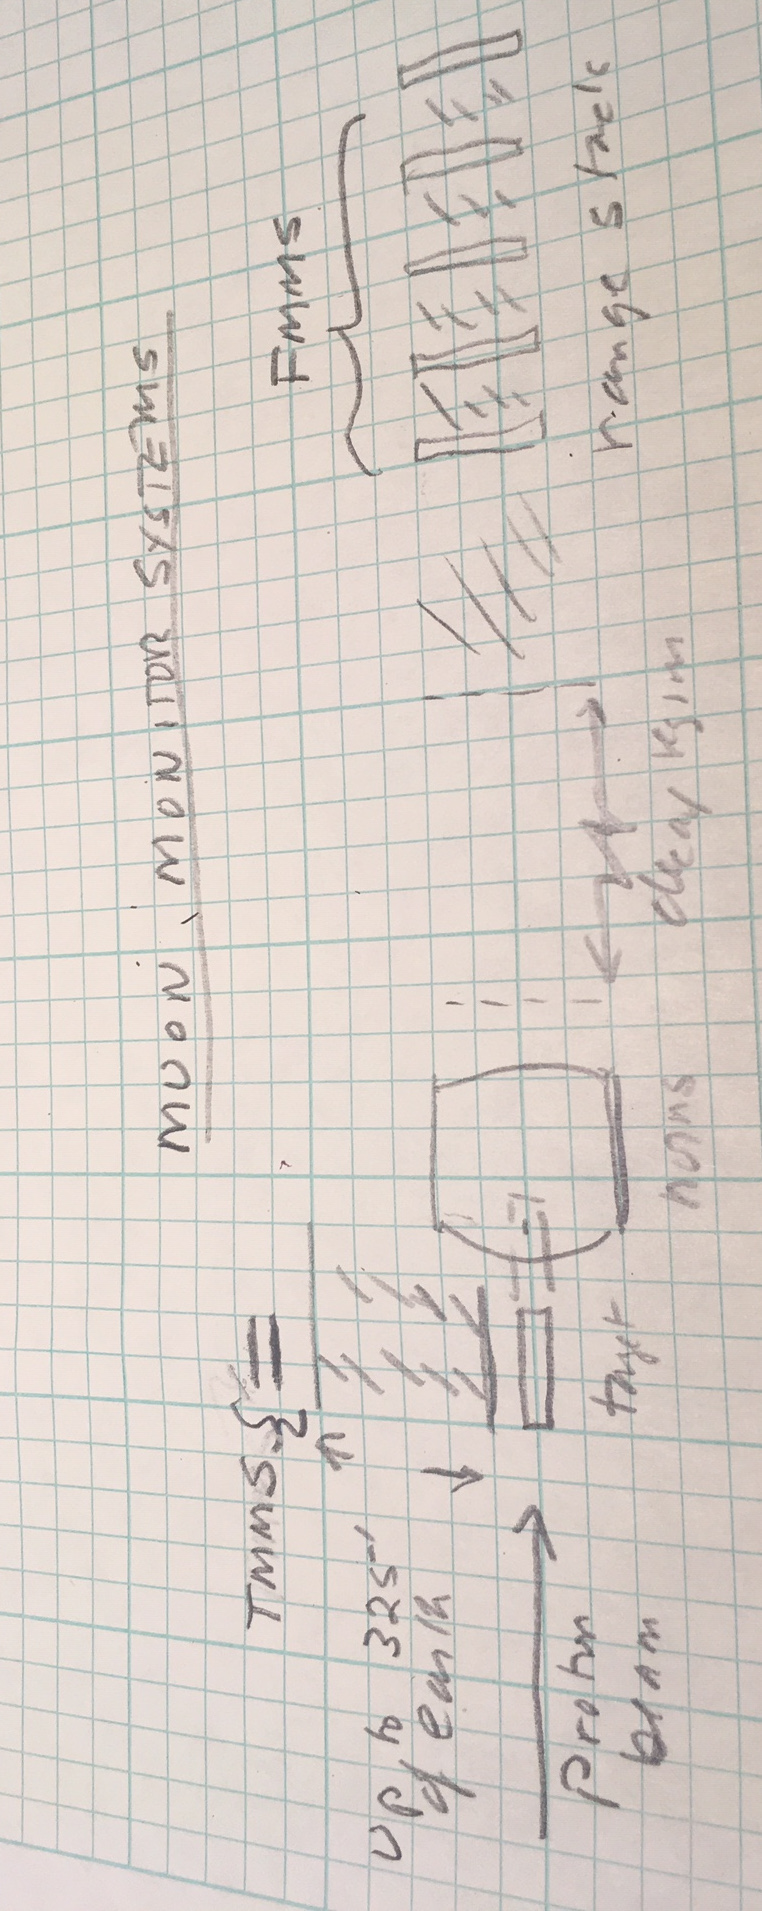 MUON MONITOR SYSTEMS
TMMS
FMMS
UP to 325'
of earth
Proton
beam
target
horns
decay region
range stack